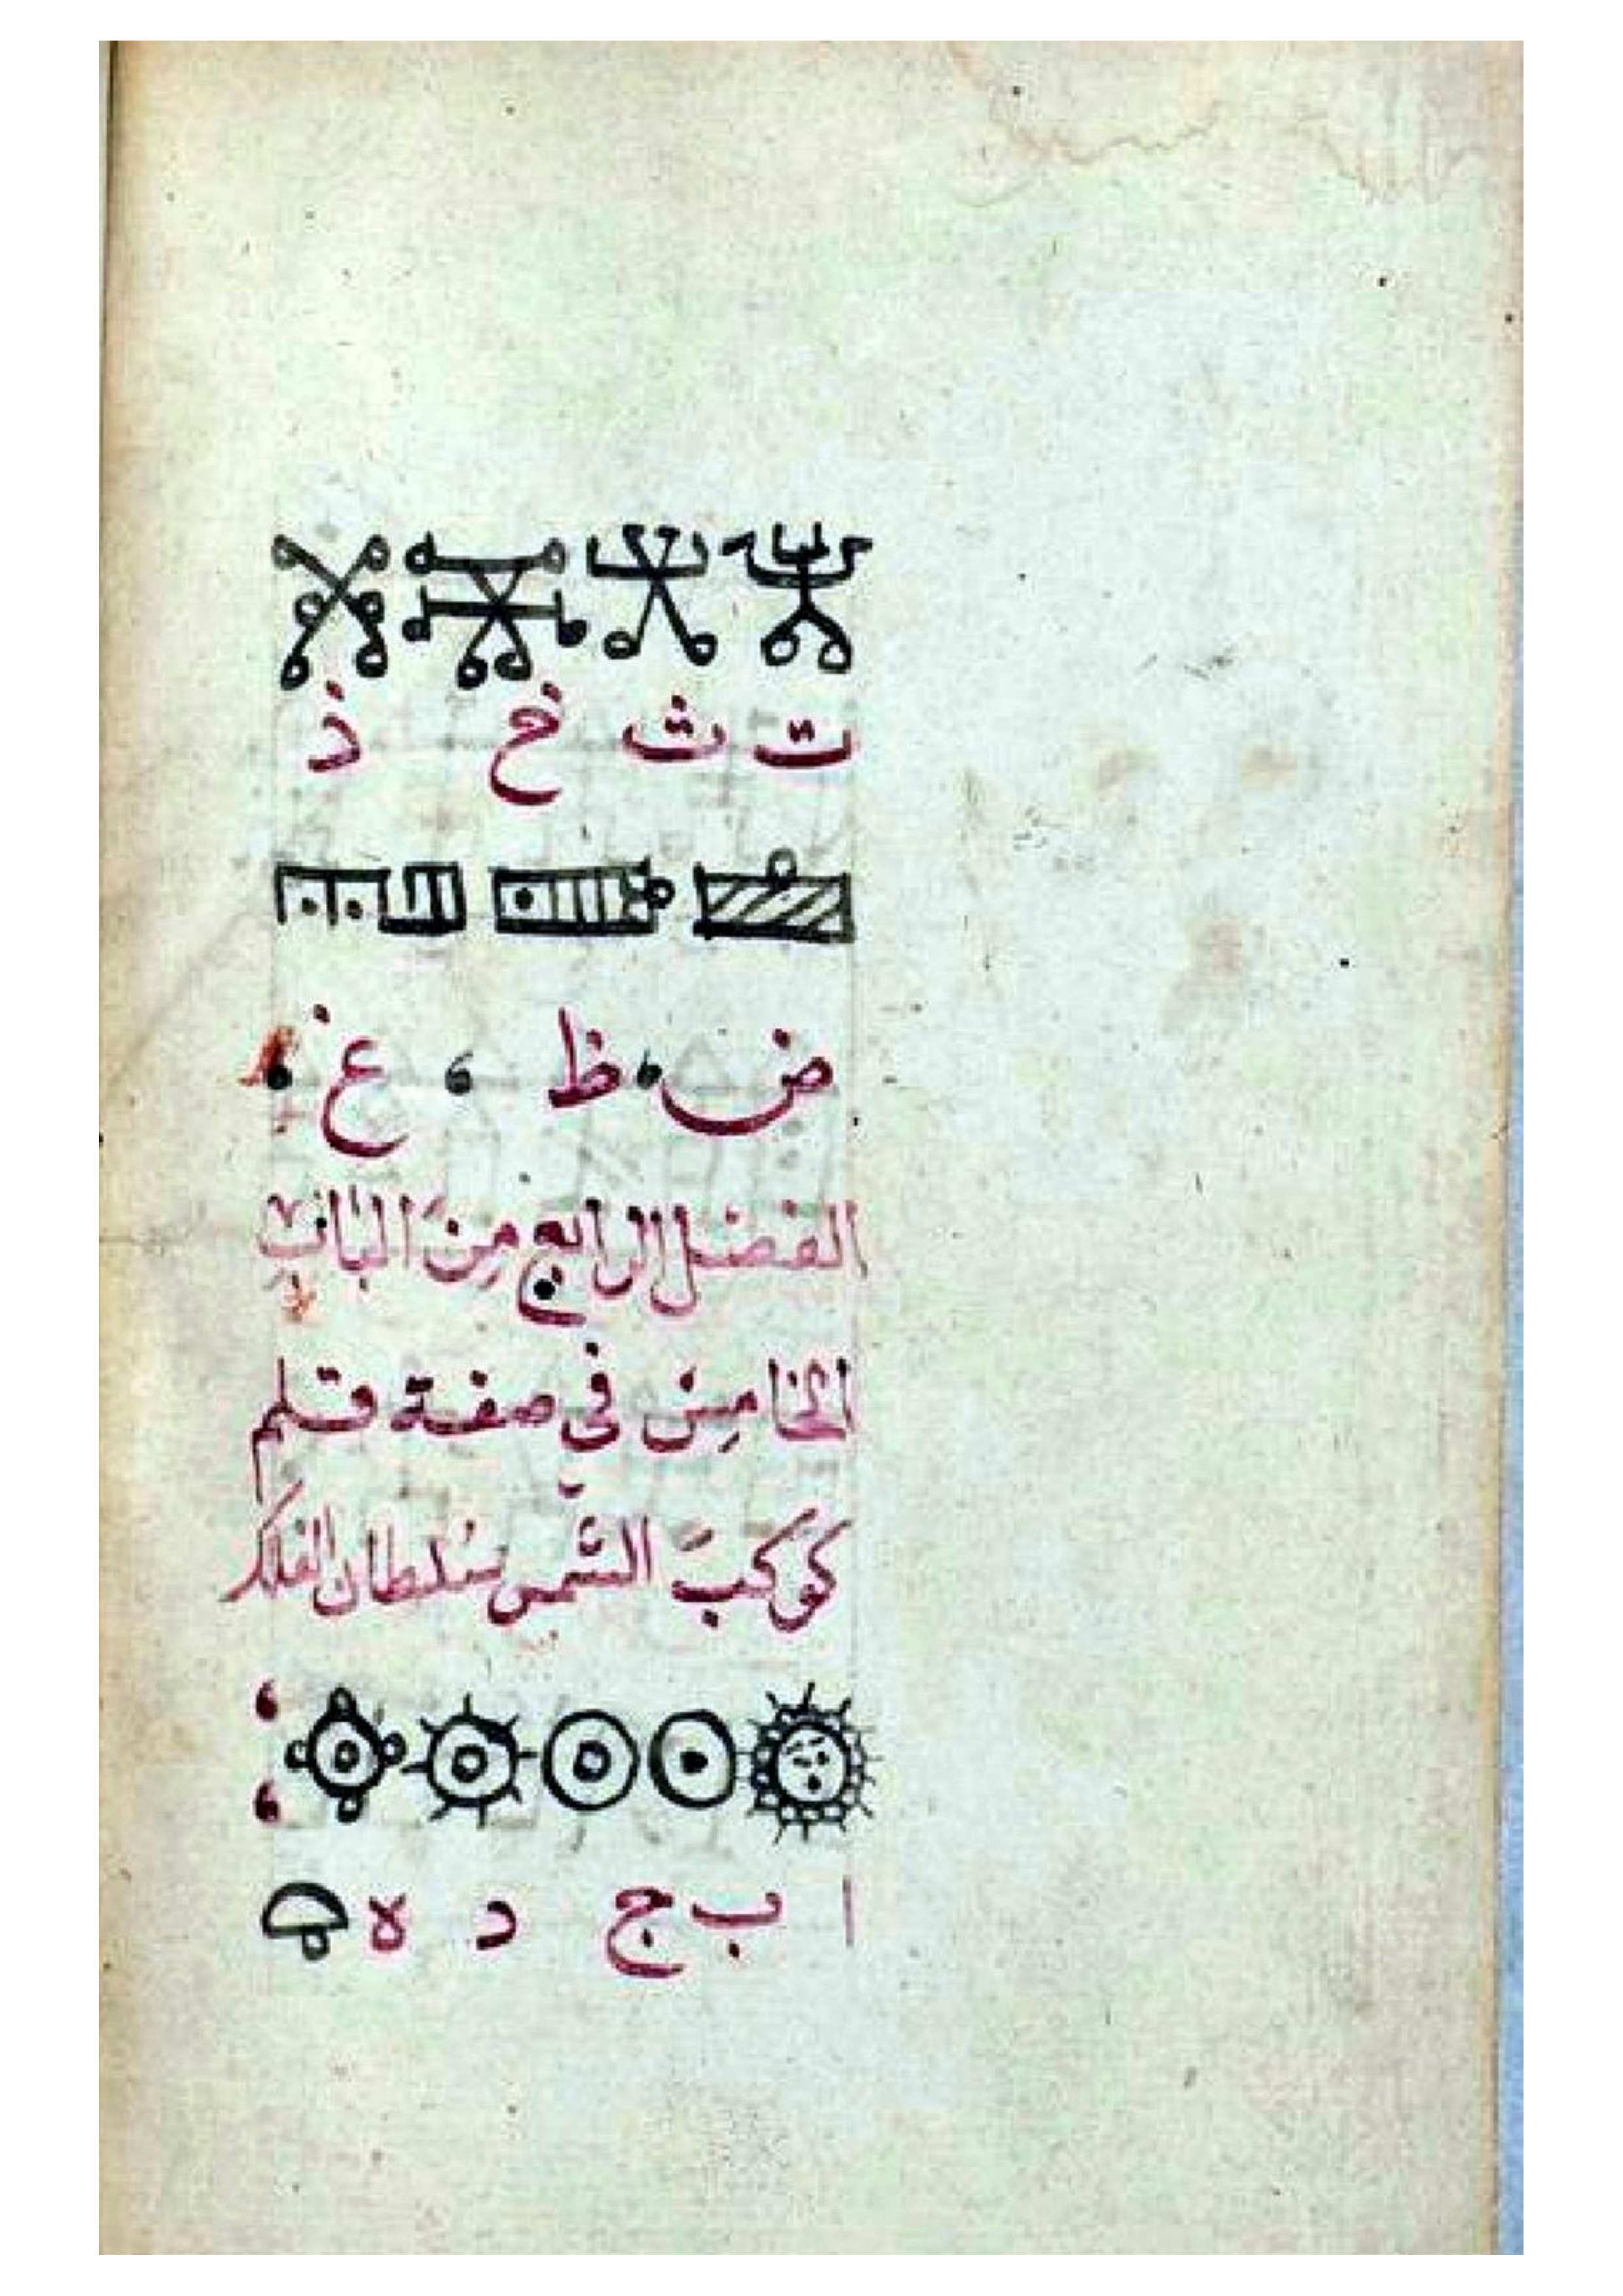 ت ث خ ذ
ض ظ غ
الفصل الرابع من الباب
الخامس في صفة قلم
كوكب الشمس سلطان الفلك
ا ب ج د ه